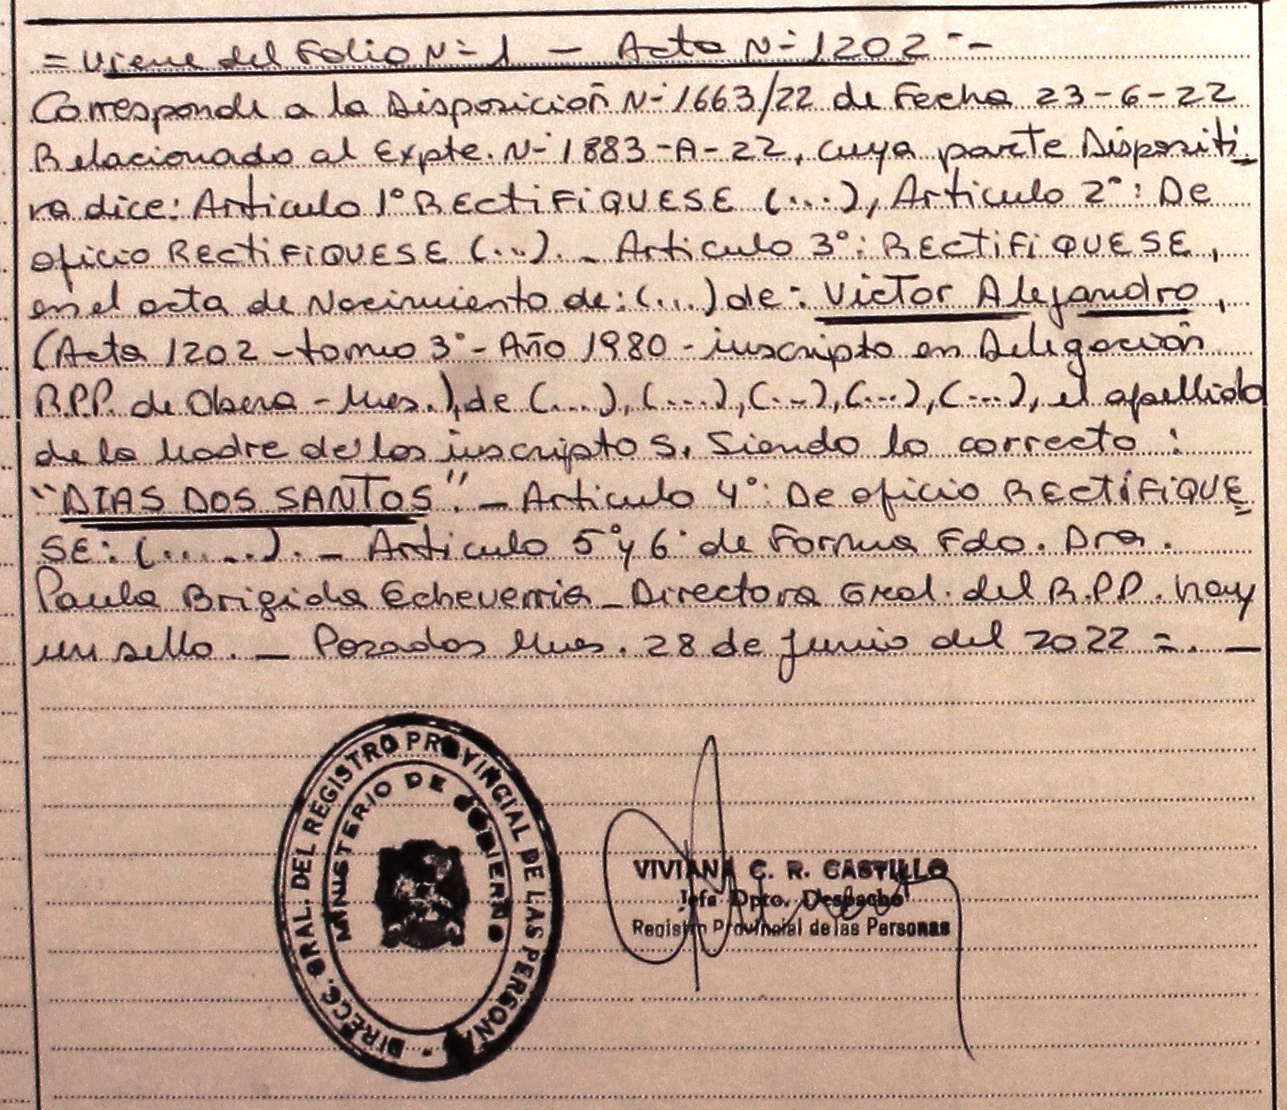 = Viene del Folio N-1 - Acta N-1202 -
Corresponde a la Disposición N-1663/22 de Fecha 23-6-22
Relacionado al Expte. N-1883-A-22, cuya parte Dispositi-
va dice: Articulo 1° RECTIFIQUESE (...), Articulo 2°: De
oficio RECTIFIQUESE (...). - Articulo 3°: RECTIFIQUESE,
en el acta de Nacimiento de: (...) de: Victor Alejandro,
(Acta 1202 - tomo 3° - Año 1980 - inscripto en Delegación
R.P.P. de Obera - Mnes.), de (...), (....), (...), (...), (...), el apellido
de la Madre de los inscriptos, Siendo lo correcto:
"DIAS DOS SANTOS". - Articulo 4°: De oficio RECTIFIQUE
SE: (......). - Articulo 5° y 6° de Forma Fdo. Dra.
Paula Brigida Echeverria - Directora Gral. del R.P.P. hay
un sello. - Posadas Mnes. 28 de Junio del 2022 =. -
DIRECC. GRAL. DEL REGISTRO PROVINCIAL DE LAS PERSONAS
MINISTERIO DE GOBIERNO
VIVIANA C. R. CASTILLO
Jefa Dpto. Despacho
Registro Provincial de las Personas